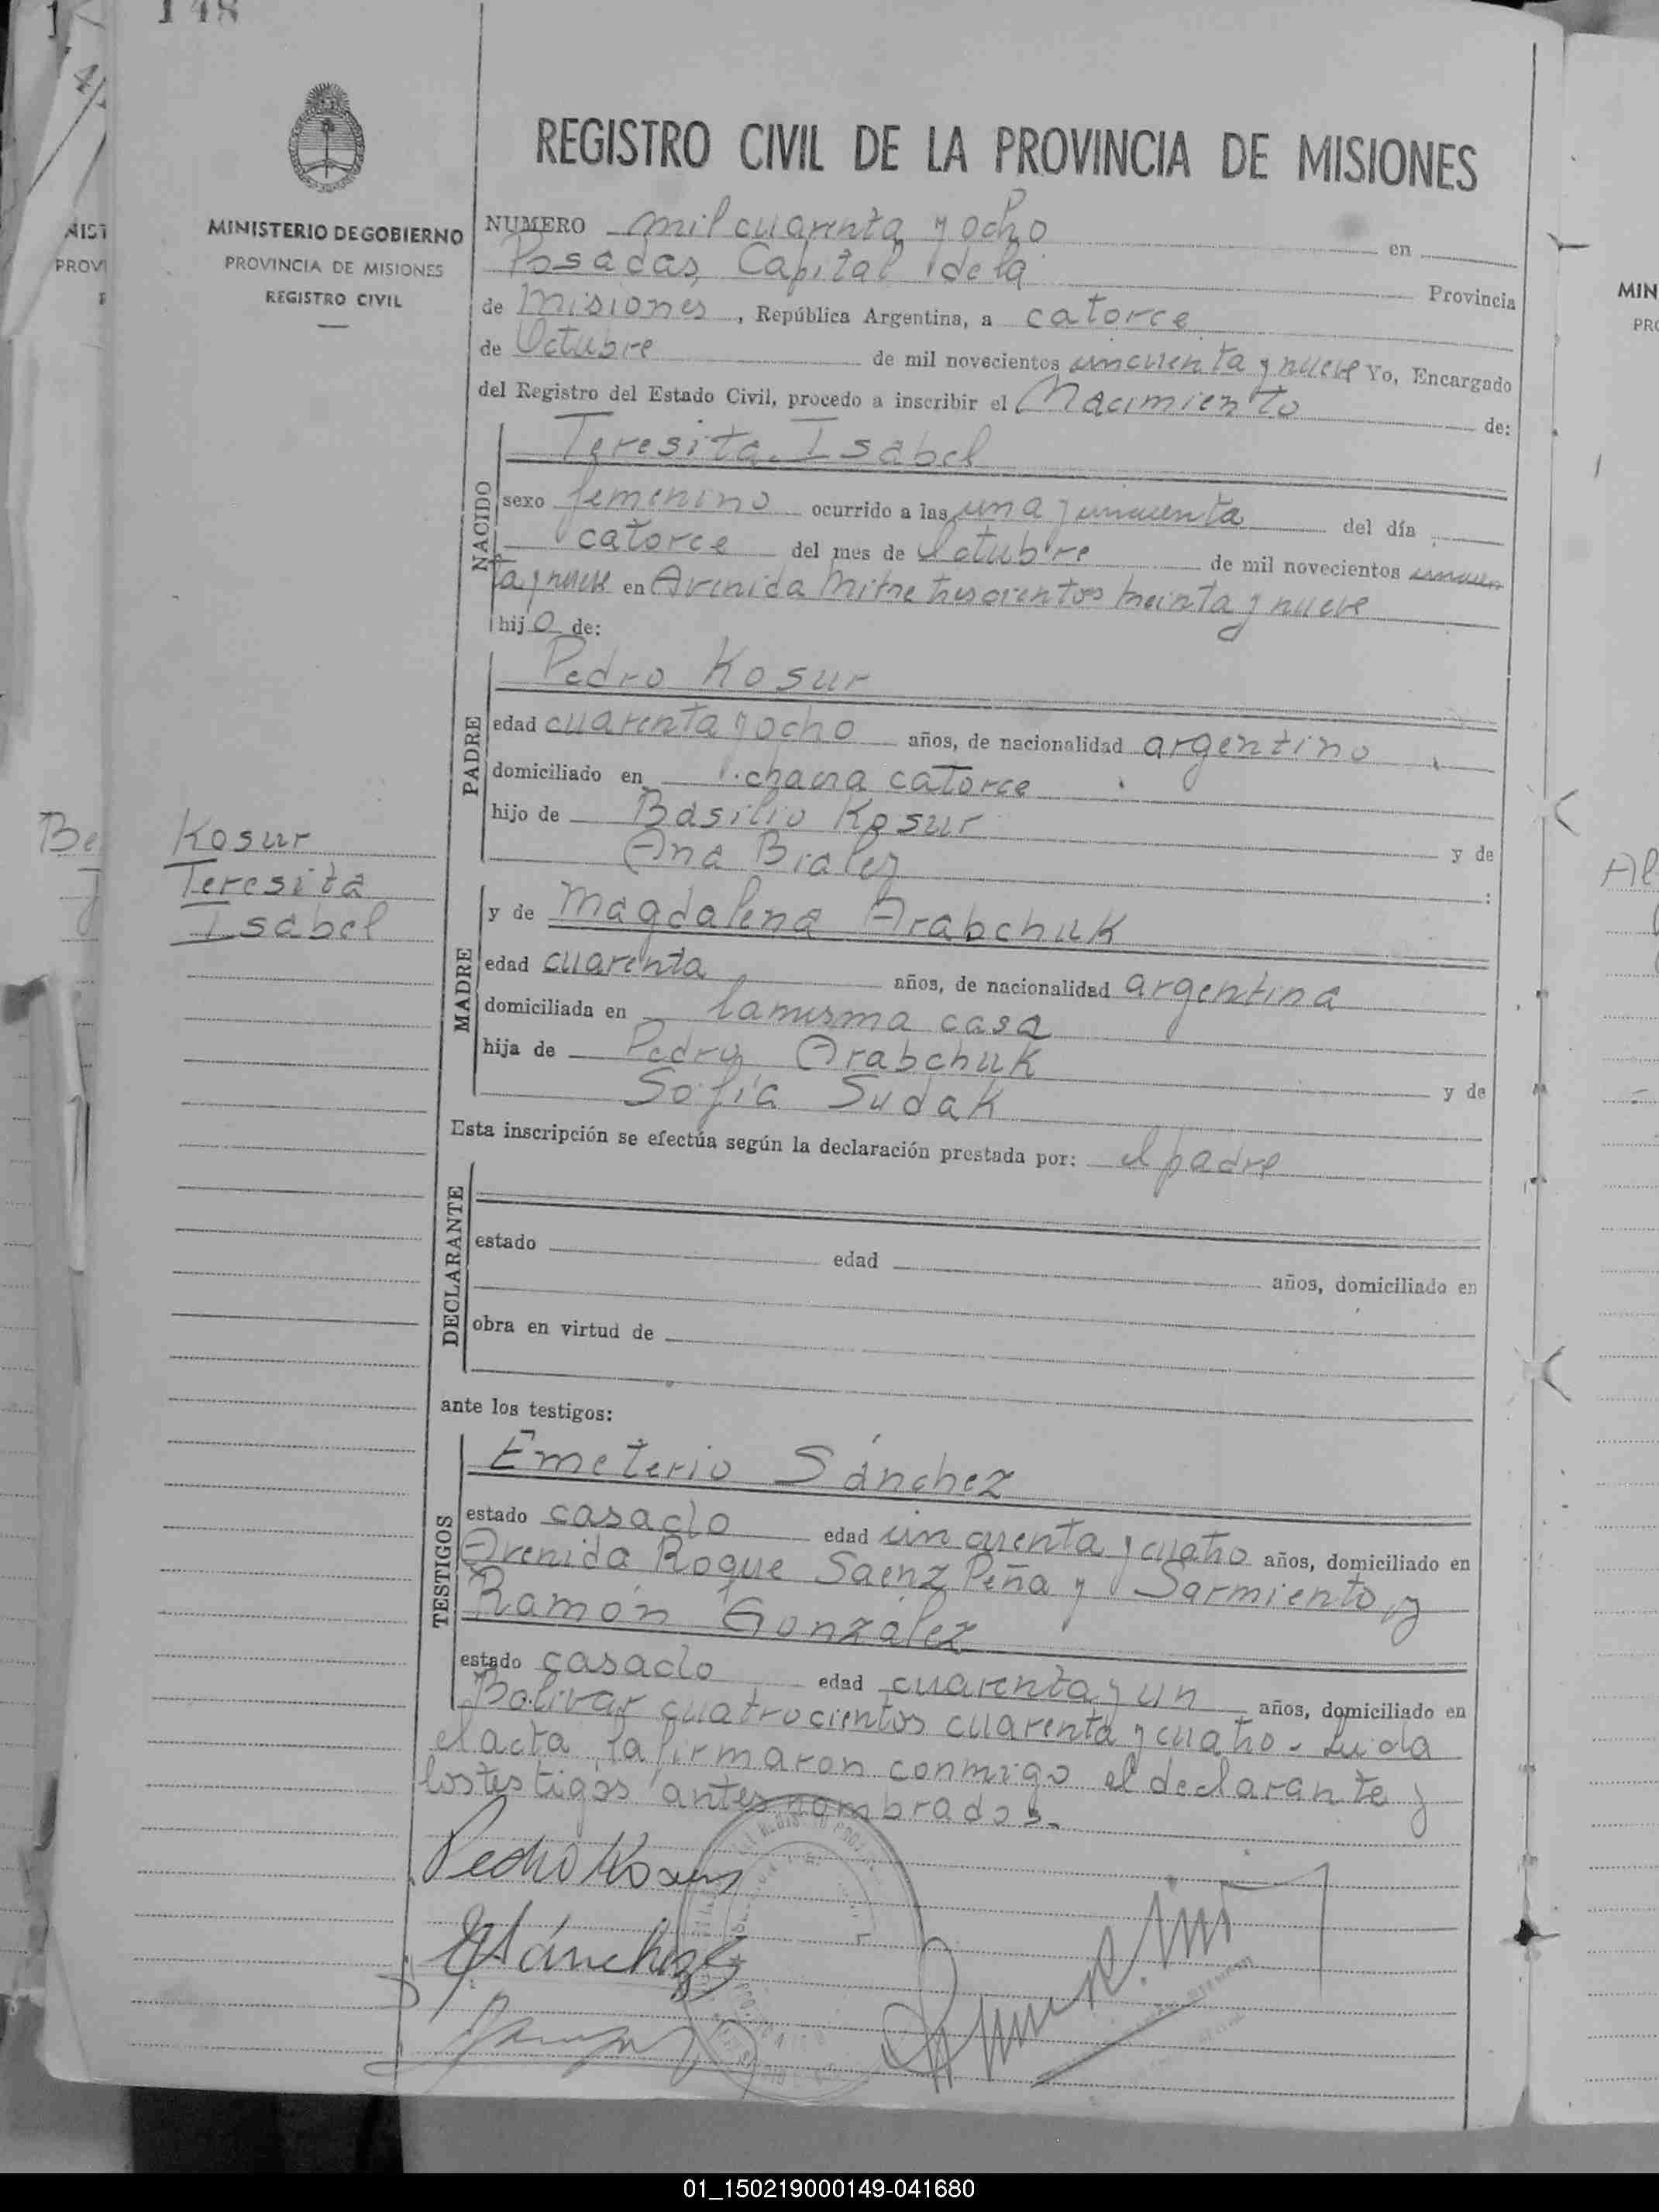 148
MINISTERIO DE GOBIERNO
PROVINCIA DE MISIONES
REGISTRO CIVIL
REGISTRO CIVIL DE LA PROVINCIA DE MISIONES
NUMERO mil cuarenta y ocho en
Posadas, Capital de la Provincia
de Misiones, República Argentina, a catorce
de Octubre de mil novecientos cincuenta y nueve Yo, Encargado
del Registro del Estado Civil, procedo a inscribir el Nacimiento de:
NACIDO
Teresita Isabel
sexo femenino ocurrido a las una y cincuenta del día
catorce del mes de Octubre de mil novecientos cincuen
ta y nueve en Avenida Mitre trescientos treinta y nueve
hijo de:
PADRE
Pedro Kosur
edad cuarenta y ocho años, de nacionalidad argentino
domiciliado en chacra catorce
hijo de Basilio Kosur y de
Ana Bialez :
MADRE
y de Magdalena Arabchuk
edad cuarenta años, de nacionalidad argentina
domiciliada en la misma casa
hija de Pedro Arabchuk y de
Sofía Sudak
Kosur
Teresita
Isabel
Esta inscripción se efectúa según la declaración prestada por: el padre
DECLARANTE
estado edad años, domiciliado en
obra en virtud de
ante los testigos:
TESTIGOS
Emeterio Sánchez
estado casado edad cincuenta y cuatro años, domiciliado en
Avenida Roque Saenz Peña y Sarmiento, y
Ramón González
estado casado edad cuarenta y un años, domiciliado en
Bolívar cuatrocientos cuarenta y cuatro. Leida
el acta, la firmaron conmigo el declarante y
los testigos antes nombrados.
Pedro Kosur
E Sánchez
MIN
01_150219000149-041680